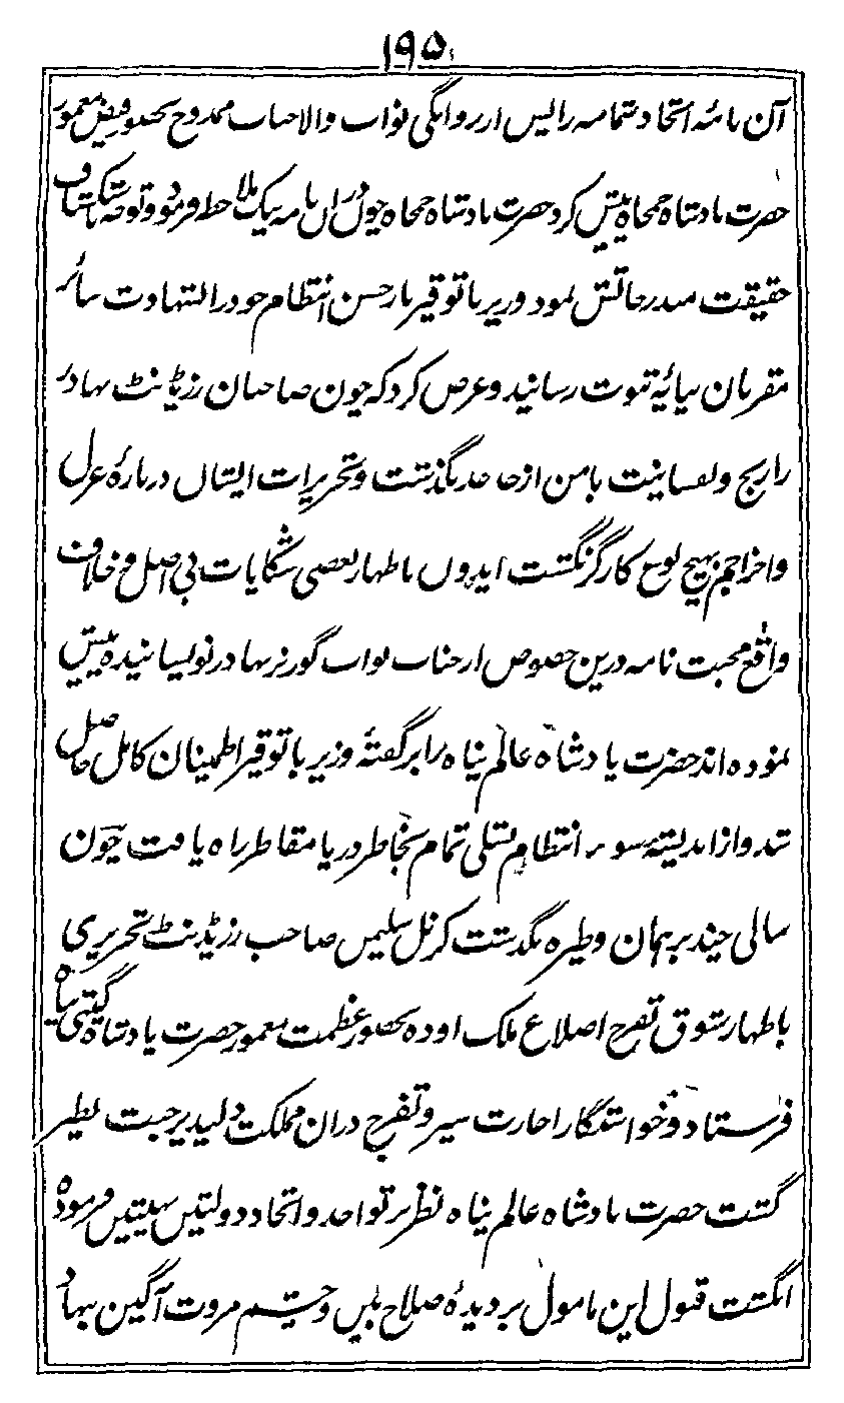 ۱۹۵
آن نامهٔ اتحاد شمامه را پس از روانگی نواب والا جناب ممدوح بحضور فیض معمور
حضرت بادشاه جمجاه پیش کرد حضرت بادشاه جمجاه چون دران نامه نیک ملاحظه فرمود و توجه باستکشاف
حقیقت مندرجاتش نمود وزیر با توقیر بار حسن انتظام خود را بشهادت سائر
مقربان بپایهٔ ثبوت رسانید و عرض کرد که چون صاحبان رزیڈنٹ بهادر
را رنج و نفسانیت با من از حد بگذشت و تحریرات ایشان دربارهٔ عزل
و اخراجم بهیچ نوع کارگر نگشت ایدون باظهار بعضی شکایات بی اصل و خلاف
واقع محبت نامه درین خصوص از جناب نواب گورنر بهادر نویسانیده پیش
نموده اند حضرت بادشاه عالم پناه را بر گفتهٔ وزیر با توقیر اطمینان کامل حاصل
شد و از اندیشهٔ سوء انتظام تسلی تمام بخاطر دریا مقاطر راه یافت چون
سالی چند بر همان وطیره بگذشت کرنل سلیمن صاحب رزیڈنٹ تحریری
باظهار شوق تفرج اضلاع ملک اوده بحضور عظمت معمور حضرت بادشاه گیتی پناه
فرستاد و خواستگار اجازت سیر و تفرج دران مملکت دلپذیر جنت نظیر
گشت حضرت بادشاه عالم پناه نظر بر تواحد و اتحاد دولتین بهیتین فرموده
انگشت قبول این مامول بر دیدهٔ صلاح بین و چشم مروت آگین بهاد